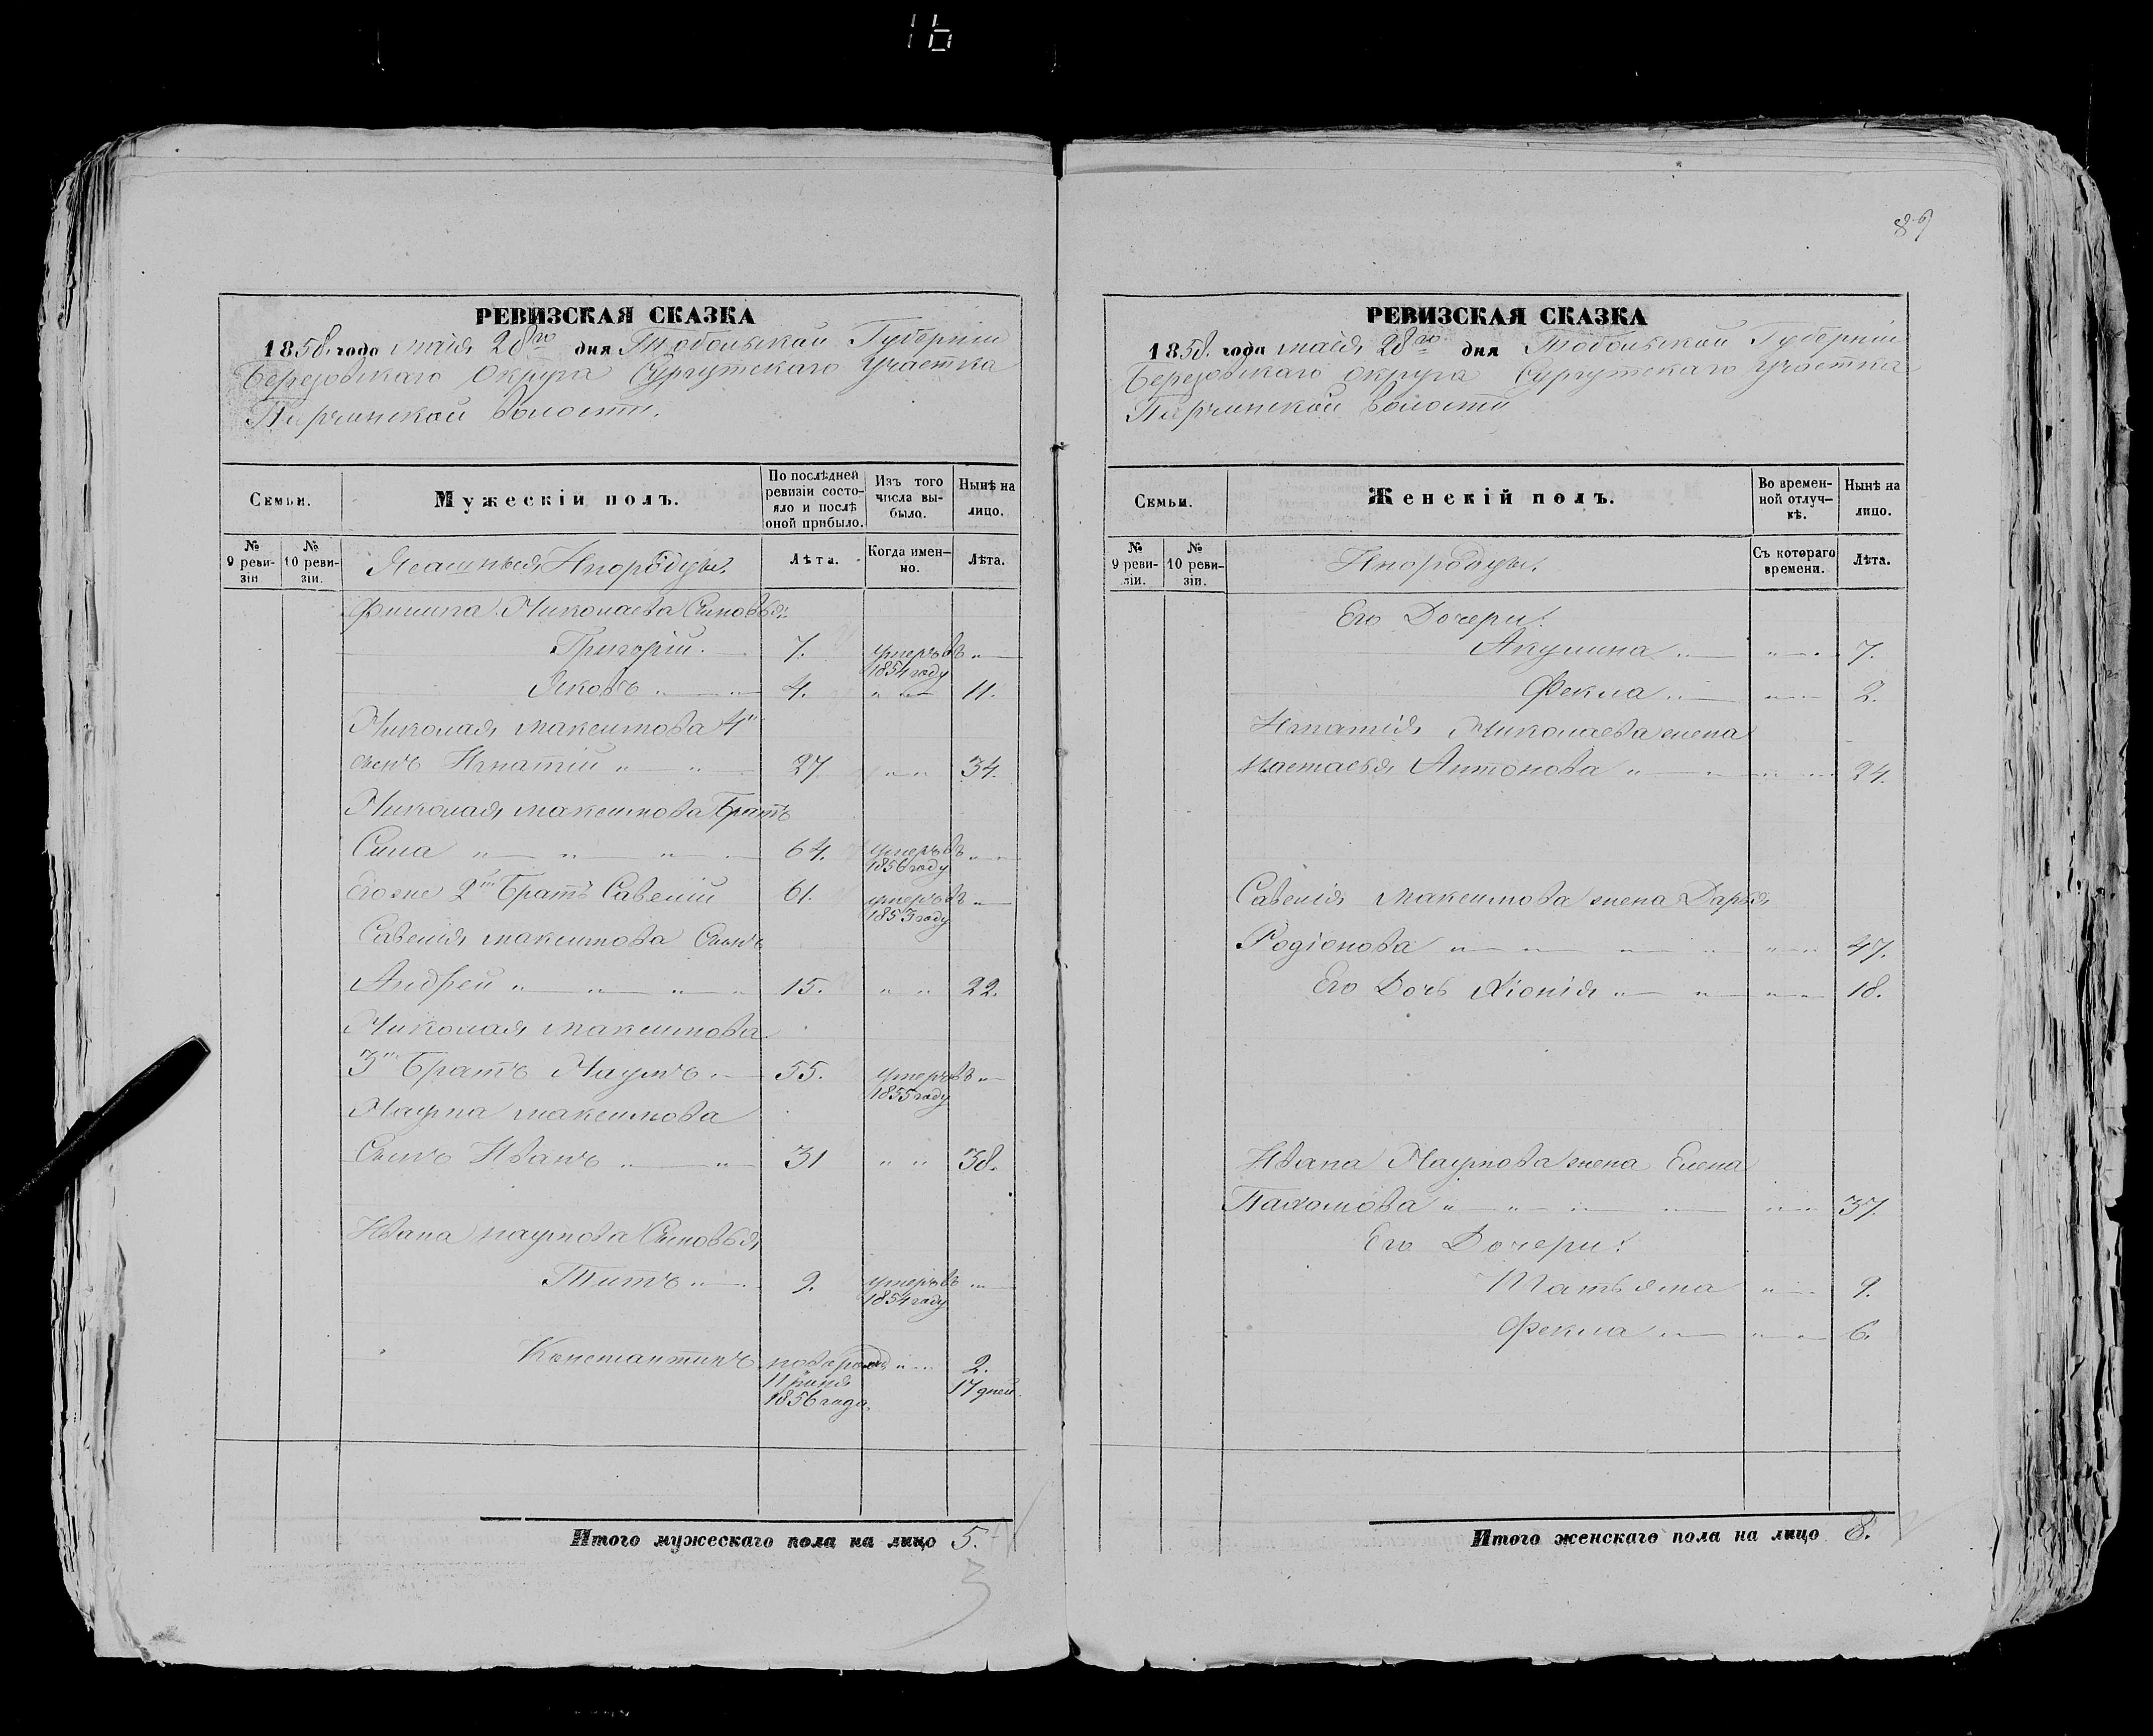 16
РЕВИЗСКАЯ СКАЗКА
1858. года маія 28го дня Тобольской Губерніи
Березовскаго Округа Сургутскаго Участка
Пирчинской волости.
Семьи.
Мужескій полъ.
По послѣдней ревизіи состо-яло и послѣ оной прибыло.
Изъ того числа вы-было.
Нынѣ на лицо.
№ 9 реви-зіи
№ 10 реви-зіи.
Ясашныя Инородцы.
Лѣта.
Когда имен-но.
Лѣта.
Филипа Николаева Сыновья:
Григорій 7. умеръ въ 1854 году
Яковъ 4. 11.
Николая Максимова 4й
сынъ Игнатій 27 34.
Николая Максимова Братъ
Сила 64. умеръ въ 1856 году
Его же 2й Братъ Савелій 61. умеръ въ 1853 году
Савелія Максимова Сынъ
Андрей 15. 22.
Николая Максимова
3й Братъ Наумъ 55. умеръ въ 1855 году
Наума Максимова
Сынъ Иванъ 31 38.
Ивана Наумова Сыновья
Титъ 9. умеръ въ 1854 году
Константинъ 2.
17 дней
1856 года
Итого мужескаго пола на лицо 5.
3
89
РЕВИЗСКАЯ СКАЗКА
1858. года маія 28го дня Тобольской Губерніи
Березовскаго округа Сургутскаго Участка
Пирчинской волости
Семьи.
Женскій полъ.
Во времен-ной отлуч-кѣ.
Нынѣ на лицо.
№ 9 реви-зіи.
№ 10 реви-зіи.
Инородцы.
Съ котораго времени.
Лѣта.
Его Дочери:
Акулина 7.
Фекла 2.
Игнатія Николаева жена
Настасья Антонова 24.
Савелія Максимова жена Дарья
Родіонова 47.
Его Дочь Хіонія 18.
Ивана Наумова жена Елена
Пахомова 37.
Его Дочери:
Татьяна 9.
Фекла 6.
Итого женскаго пола на лицо 8.